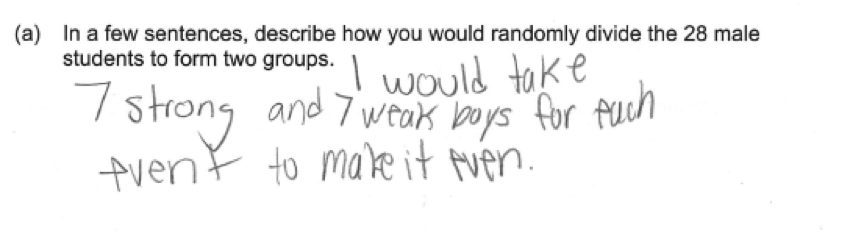 (a) In a few sentences, describe how you would randomly divide the 28 male
students to form two groups.
I would take
7 strong and 7 weak boys for each
event to make it even.